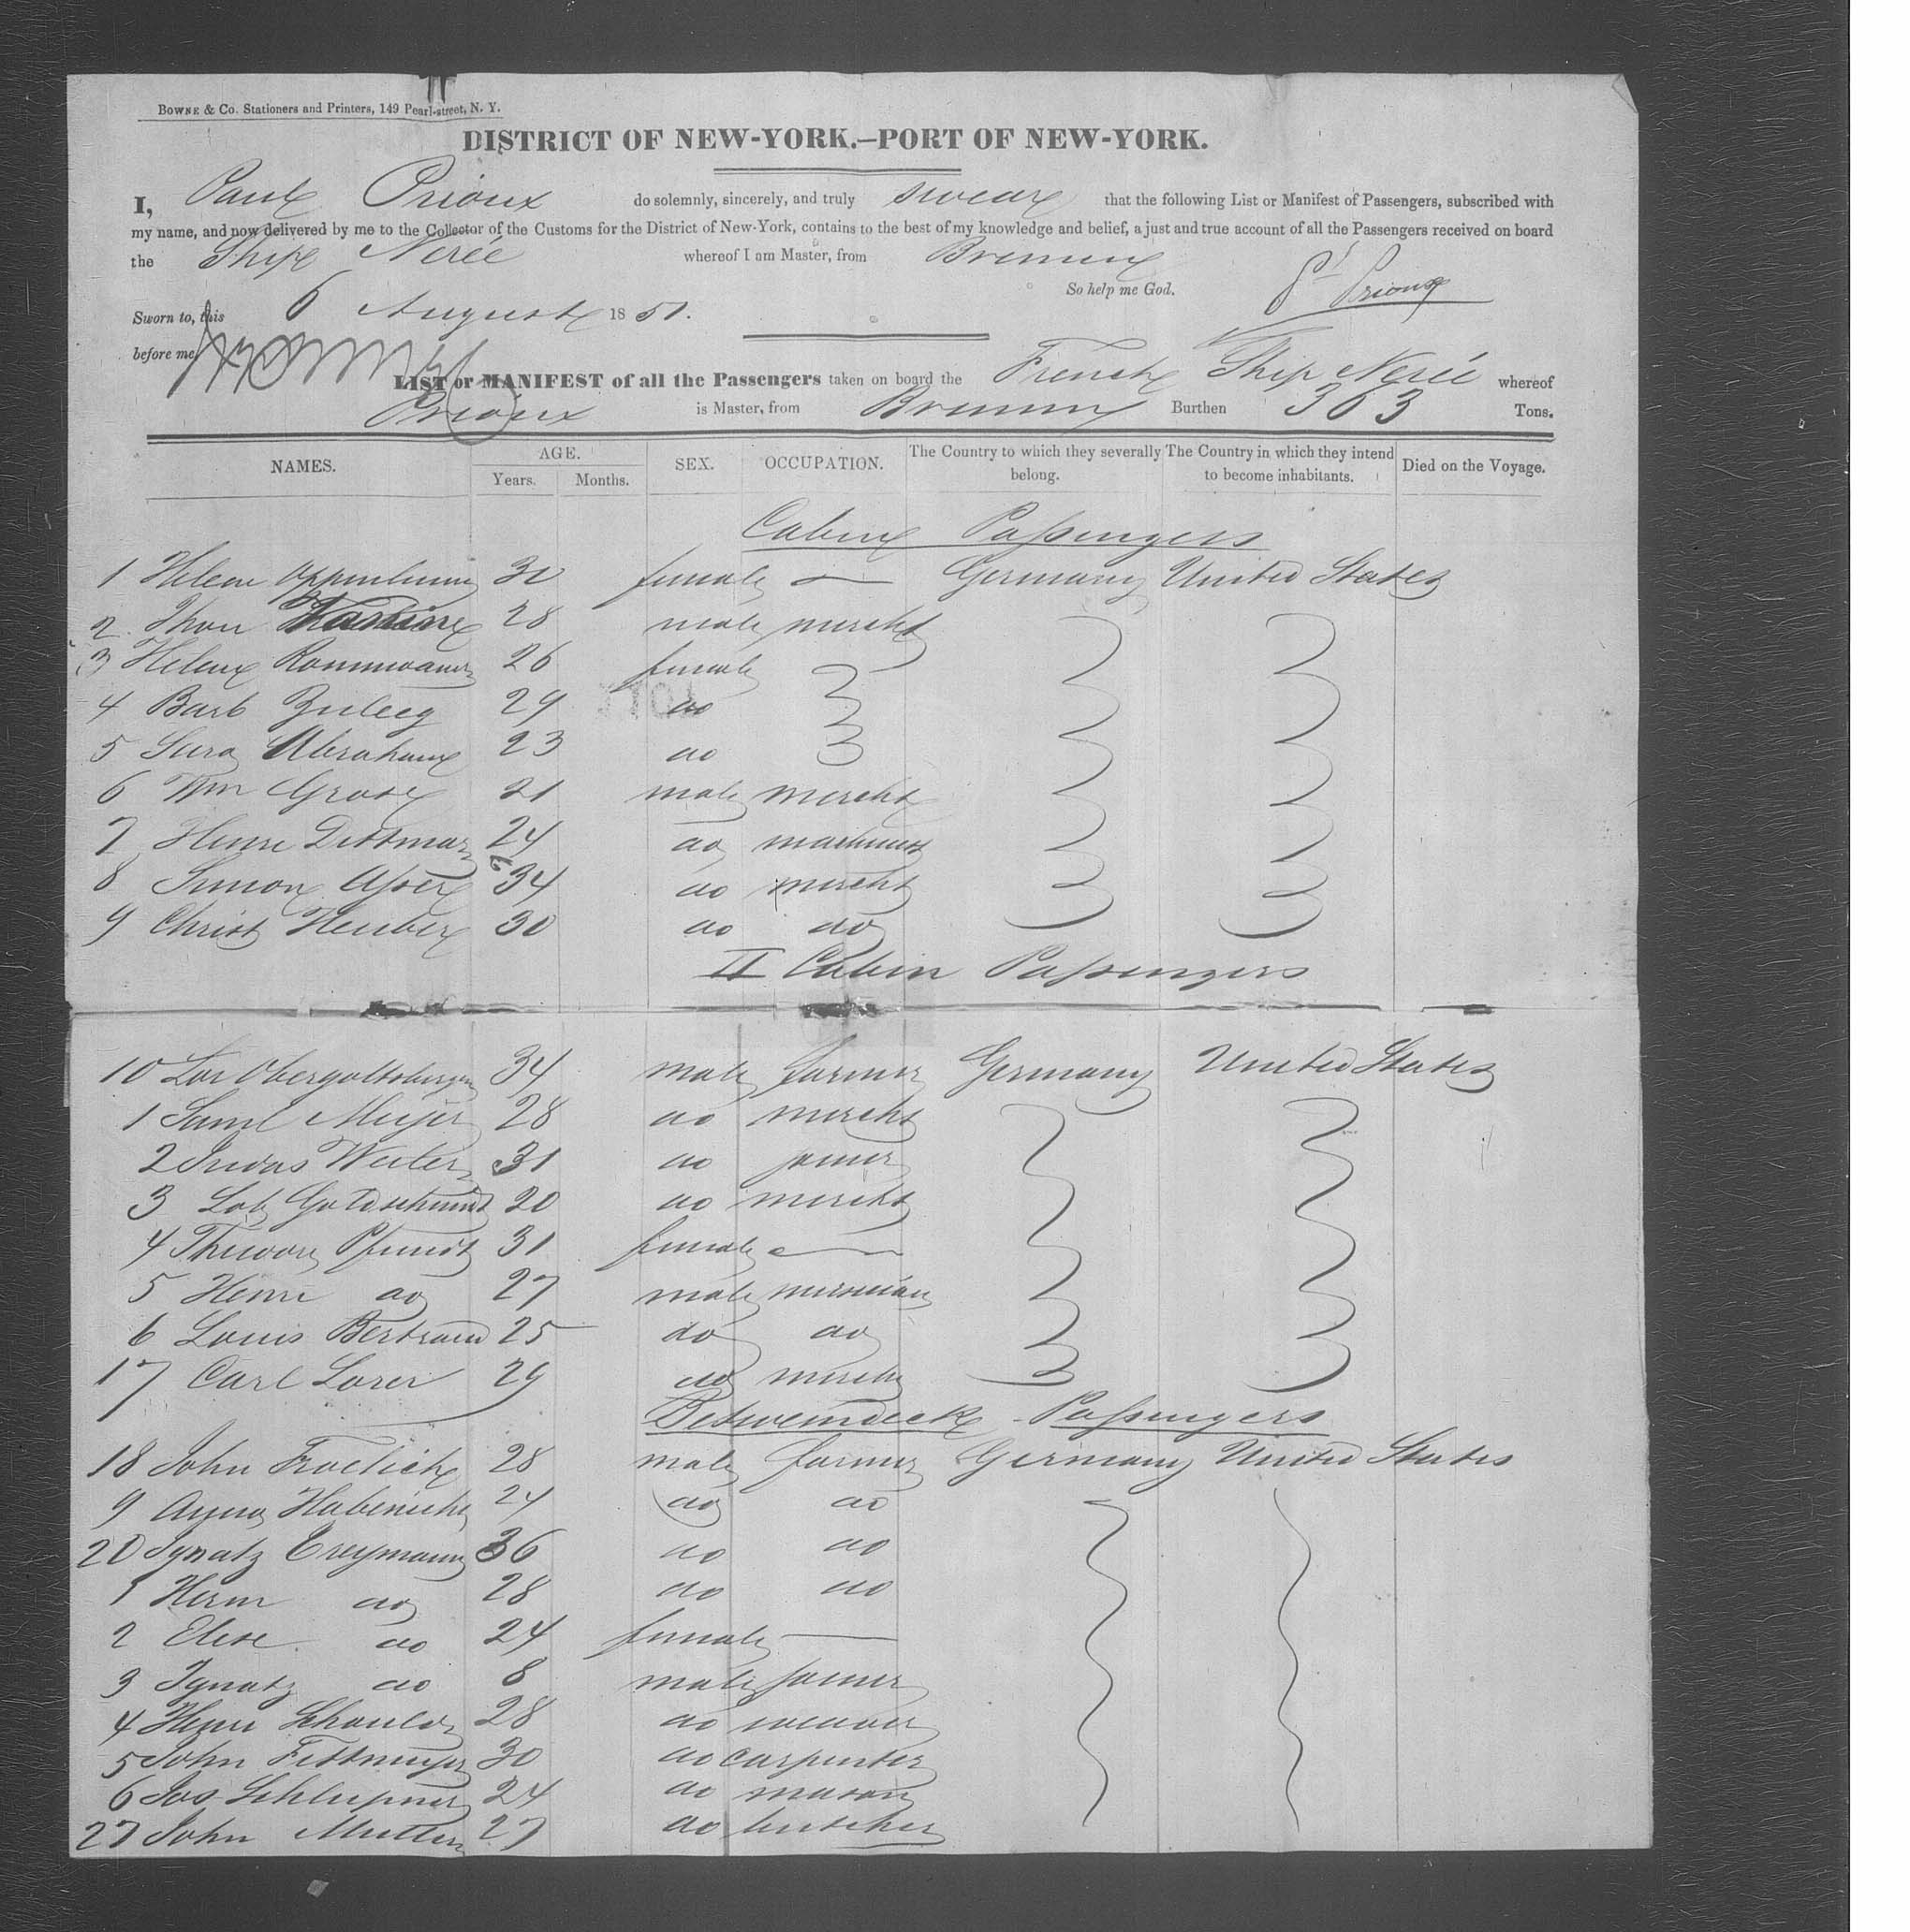 BOWNE & Co. Stationers and Printers, 149 Pearl-street, N. Y.
DISTRICT OF NEW-YORK.—PORT OF NEW-YORK.
I, Paul Prioux do solemnly, sincerely, and truly swear that the following List or Manifest of Passengers, subscribed with
my name, and now delivered by me to the Collector of the Customs for the District of New-York, contains to the best of my knowledge and belief, a just and true account of all the Passengers received on board
the Ship Nereé whereof I am Master, from Bremen
So help me God. P. Prioux
Sworn to, this 6 August 1851.
before me,
LIST or MANIFEST of all the Passengers taken on board the French Ship Nereé whereof
Prioux is Master, from Bremen Burthen 363 Tons.
NAMES. AGE. Years. Months. SEX. OCCUPATION. The Country to which they severally belong. The Country in which they intend to become inhabitants. Died on the Voyage.
Cabin Passengers
1 Helene 30 female — Germany United States
2 28 male mercht
3 Helene 26 female
4 Barb 29 do
5 Sara Abraham 23 do
6 Wm Grose 21 male mercht
7 Henri Dittmar 24 do machinist
8 Simon 34 do mercht
9 Christ Heuber 30 do do
II Cabin Passengers
10 34 male farmer Germany United States
1 Saml Meijer 28 do mercht
2 31 do joiner
3 Lob Goldschmidt 20 do mercht
4 31 female —
5 Henri do 27 male musician
6 Louis Bertrand 25 do do
17 Carl Lorer 29 do mercht
Betweendeck Passengers
18 John Froelich 28 male farmer Germany United States
9 Habenicht 24 do do
20 Ignatz Greymann 36 do do
1 Herm do 28 do do
2 Elise do 24 female —
3 Ignatz do 8 male joiner
4 Henri 28 do weaver
5 John 30 do carpenter
6 Jos 24 do mason
27 John 27 do butcher